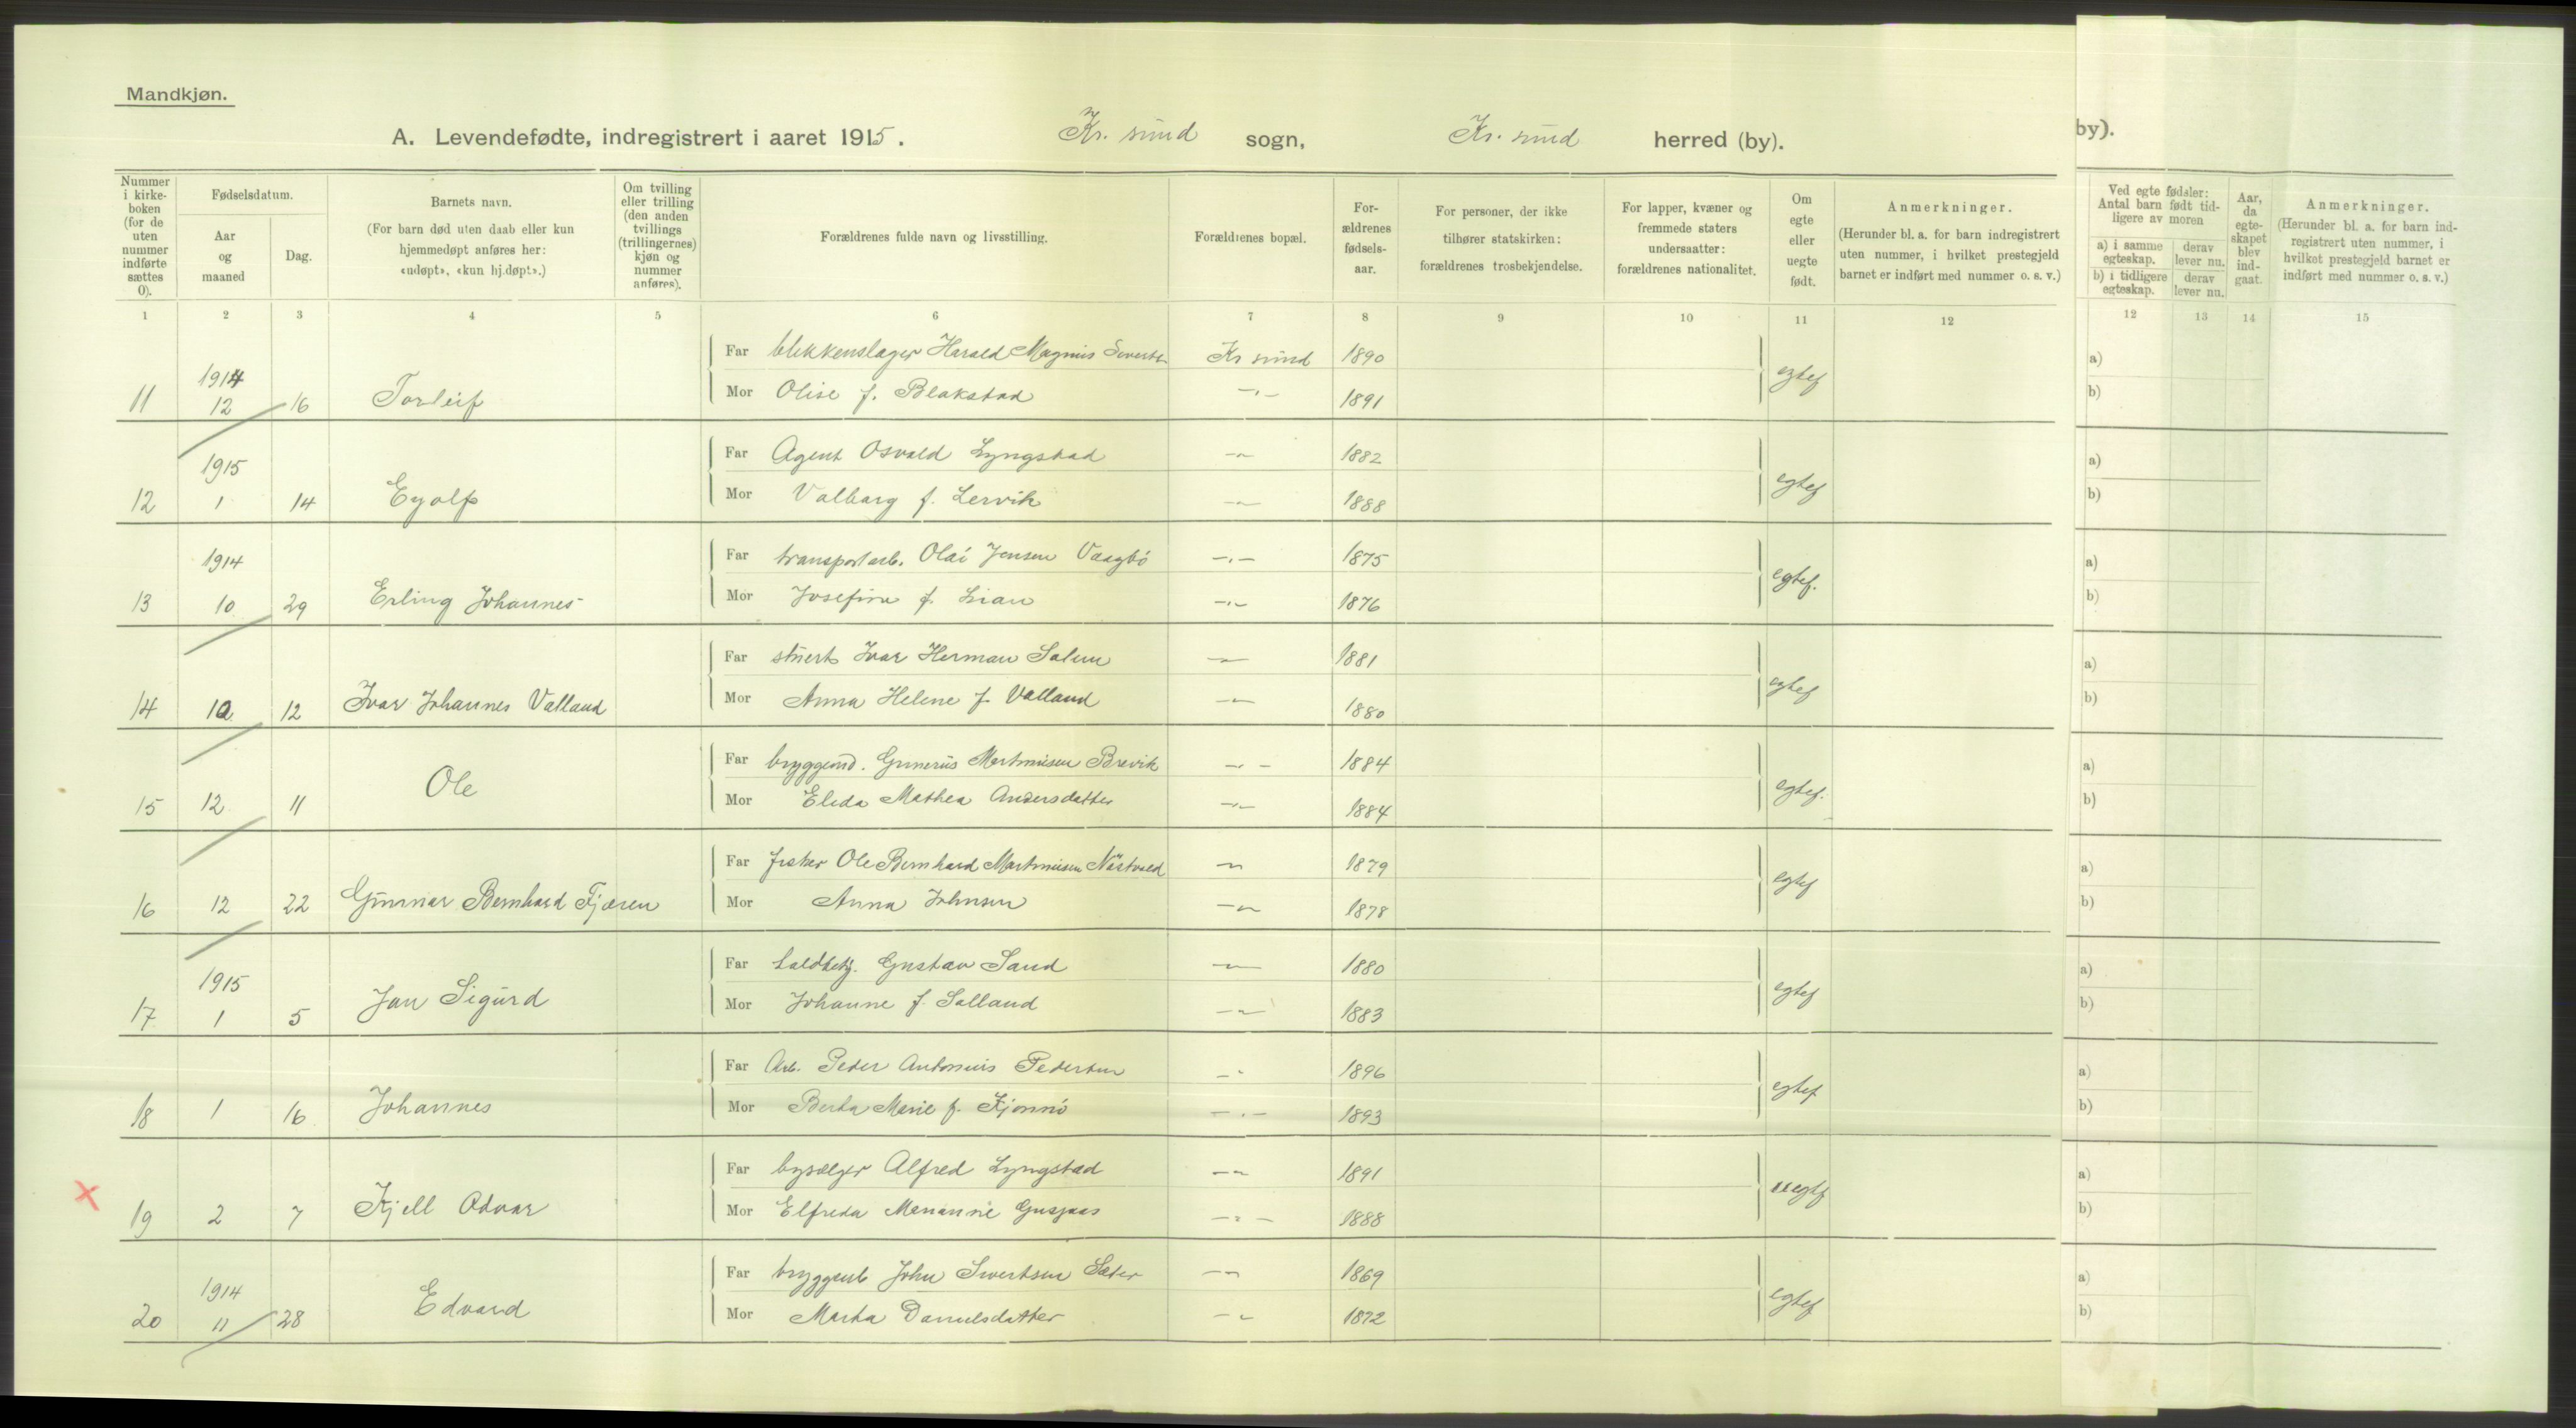 Mandkjøn.
A. Levendefødte, indregistrert i aaret 1915. Kr. sund sogn, Kr. sund herred (by).
by).
Nummer i kirkeboken (for de uten nummer indførte sættes 0).
Fødselsdatum.
Aar og maaned
Dag.
Barnets navn.
(For barn død uten daab eller kun hjemmedøpt anføres her: «udøpt», «kun hj.døpt».)
Om tvilling eller trilling (den anden tvillings (trillingernes) kjøn og nummer anføres).
Forældrenes fulde navn og livsstilling.
Forældrenes bopæl.
Forældrenes fødselsaar.
For personer, der ikke tilhører statskirken: forældrenes trosbekjendelse.
For lapper, kvæner og fremmede staters undersaatter: forældrenes nationalitet.
Om egte eller uegte født.
Anmerkninger.
(Herunder bl. a. for barn indregistrert uten nummer, i hvilket prestegjeld barnet er indført med nummer o. s. v.)
Ved egte fødsler: Antal barn født tidligere av moren
a) i samme egteskap. derav lever nu.
b) i tidligere egteskap. derav lever nu.
Aar, da egteskapet blev indgaat.
Anmerkninger.
(Herunder bl. a. for barn indregistrert uten nummer, i hvilket prestegjeld barnet er indført med nummer o. s. v.)
1 2 3 4 5 6 7 8 9 10 11 12 12 13 14 15
Far blikkenslager Harald Magnus Kr sund 1890 a)
11 1914 12 16 Torleif egtef
Mor Olise f. Blakstad —"— 1891 b)
Far Agent Osvald Lyngstad —"— 1882 a)
12 1915 1 14 Eyolf egtef
Mor Valborg f. Lervik —"— 1888 b)
Far transportarb. Olai Jensen Vaagbø —"— 1875 a)
13 1914 10 29 Erling Johannes egtef.
Mor Josefine f. Lian —"— 1876 b)
Far stuert Ivar Herman —"— 1881 a)
14 12 Ivar Johannes Valland egtef
Mor Anna Helene f. Valland —"— 1880 b)
Far Gunerius Martinusen Brevik —"— 1884 a)
15 12 11 Ole egtef.
Mor Elida Mathea Andersdatter —"— 1884 b)
Far fisker Ole Bernhard Martinusen —"— 1879 a)
16 12 22 Gunnar Bernhard Fjæren egtef
Mor Anna Johnsen —"— 1878 b)
Far Gustav Sand —"— 1880 a)
17 1915 1 5 Jan Sigurd egtef
Mor Johanne f. Salland —"— 1883 b)
Far Arb. Peder Antonius Pedersen —"— 1896 a)
18 1 16 Johannes egtef
Mor Berta Marie f. —"— 1893 b)
Far bysælger Alfred Lyngstad —"— 1891 a)
X 19 2 7 Kjell Odvar uegtf
Mor Elfreda —"— 1888 b)
Far bryggearb John Sivertsen Sæter —"— 1869 a)
20 1914 11 28 Edvard egtef
Mor Marta Danielsdatter —"— 1872 b)